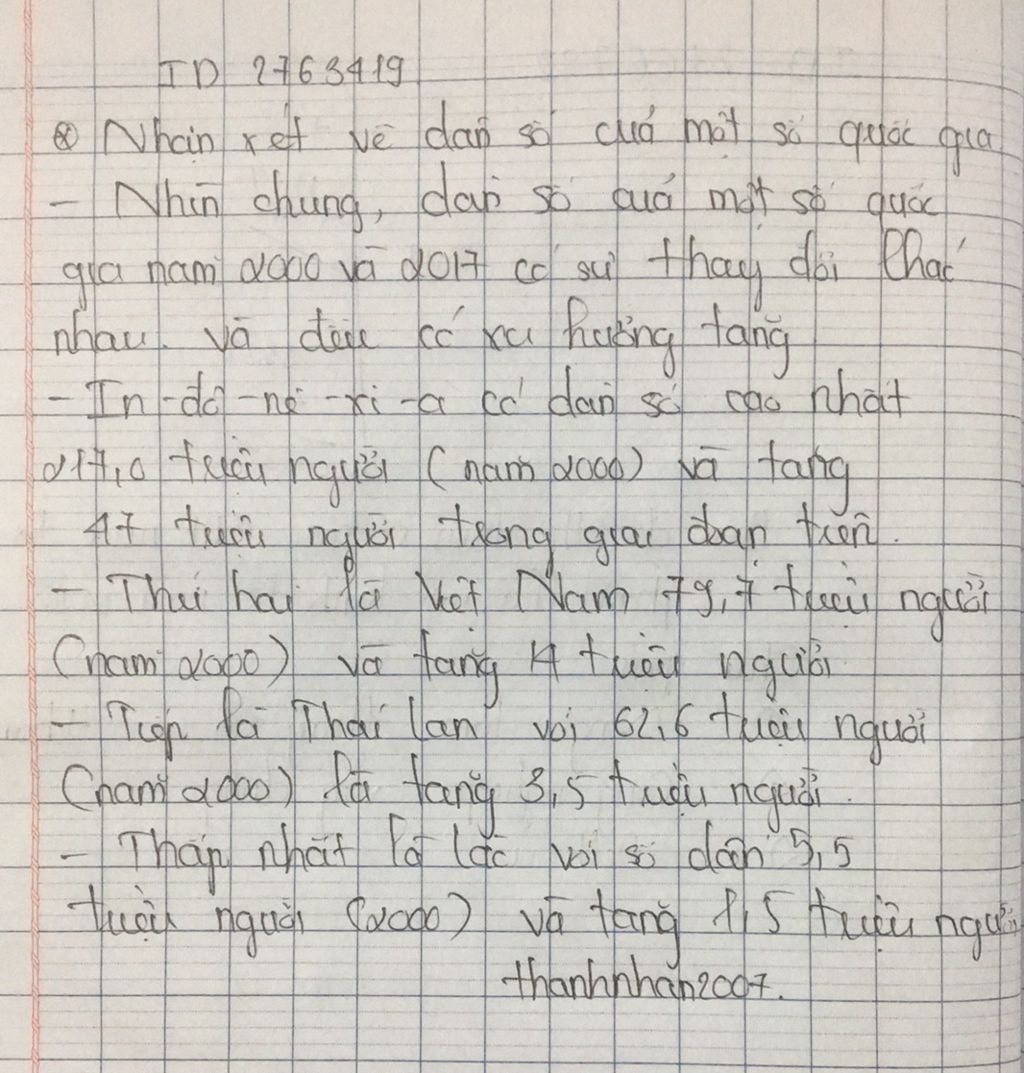 ID 2763419
⊗ Nhận xét về dân số của một số quốc gia
- Nhìn chung, dân số của một số quốc
gia năm 2000 và 2017 có sự thay đổi khác
nhau. và đều có xu hướng tăng
- In-đô-nê-xi-a có dân số cao nhất
217,0 triệu người (năm 2000) và tăng
47 triệu người trong giai đoạn trên.
- Thứ hai là Việt Nam 79,7 triệu người
(năm 2000) và tăng 14 triệu người
- Tiếp là Thái lan với 62,6 triệu người
(năm 2000) là tăng 3,5 triệu người.
- Thấp nhất là lào với số dân 5,5
triệu người (2000) và tăng 1,5 triệu người
thanhnhan2007.